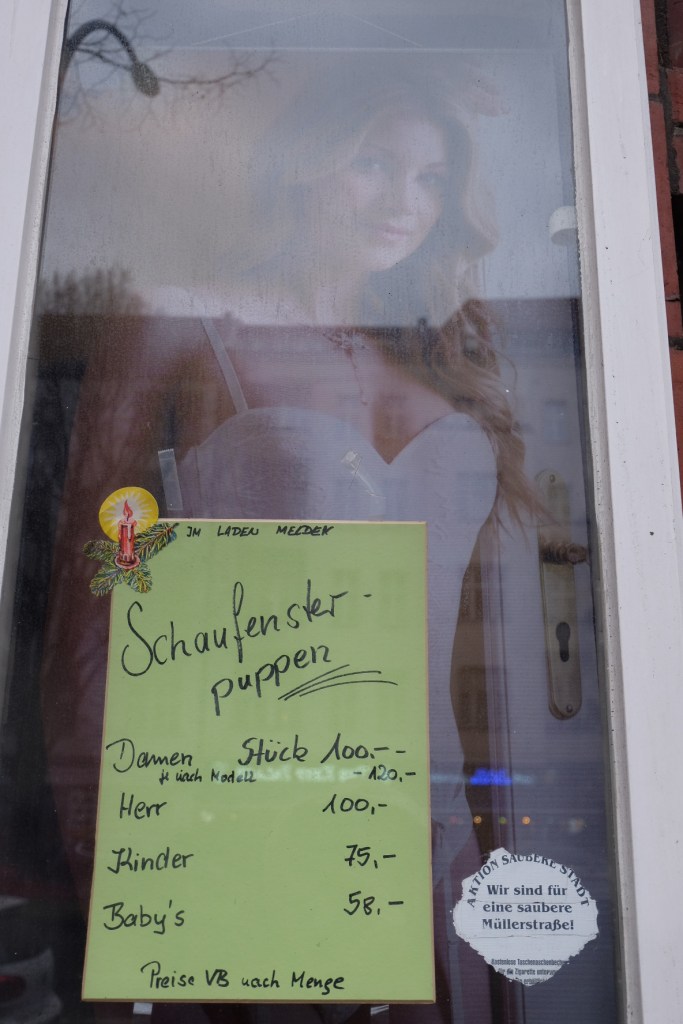 IM LADEN MELDEN
Schaufenster-
puppen
Damen Stück 100.--
je nach Modell - 120,-
Herr 100,-
Kinder 75,-
Baby's 58,-
Preise VB nach Menge
AKTION SAUBERE STADT
Wir sind für
eine saubere
Müllerstraße!
Kostenlose Taschenaschenbecher
für die Zigarette